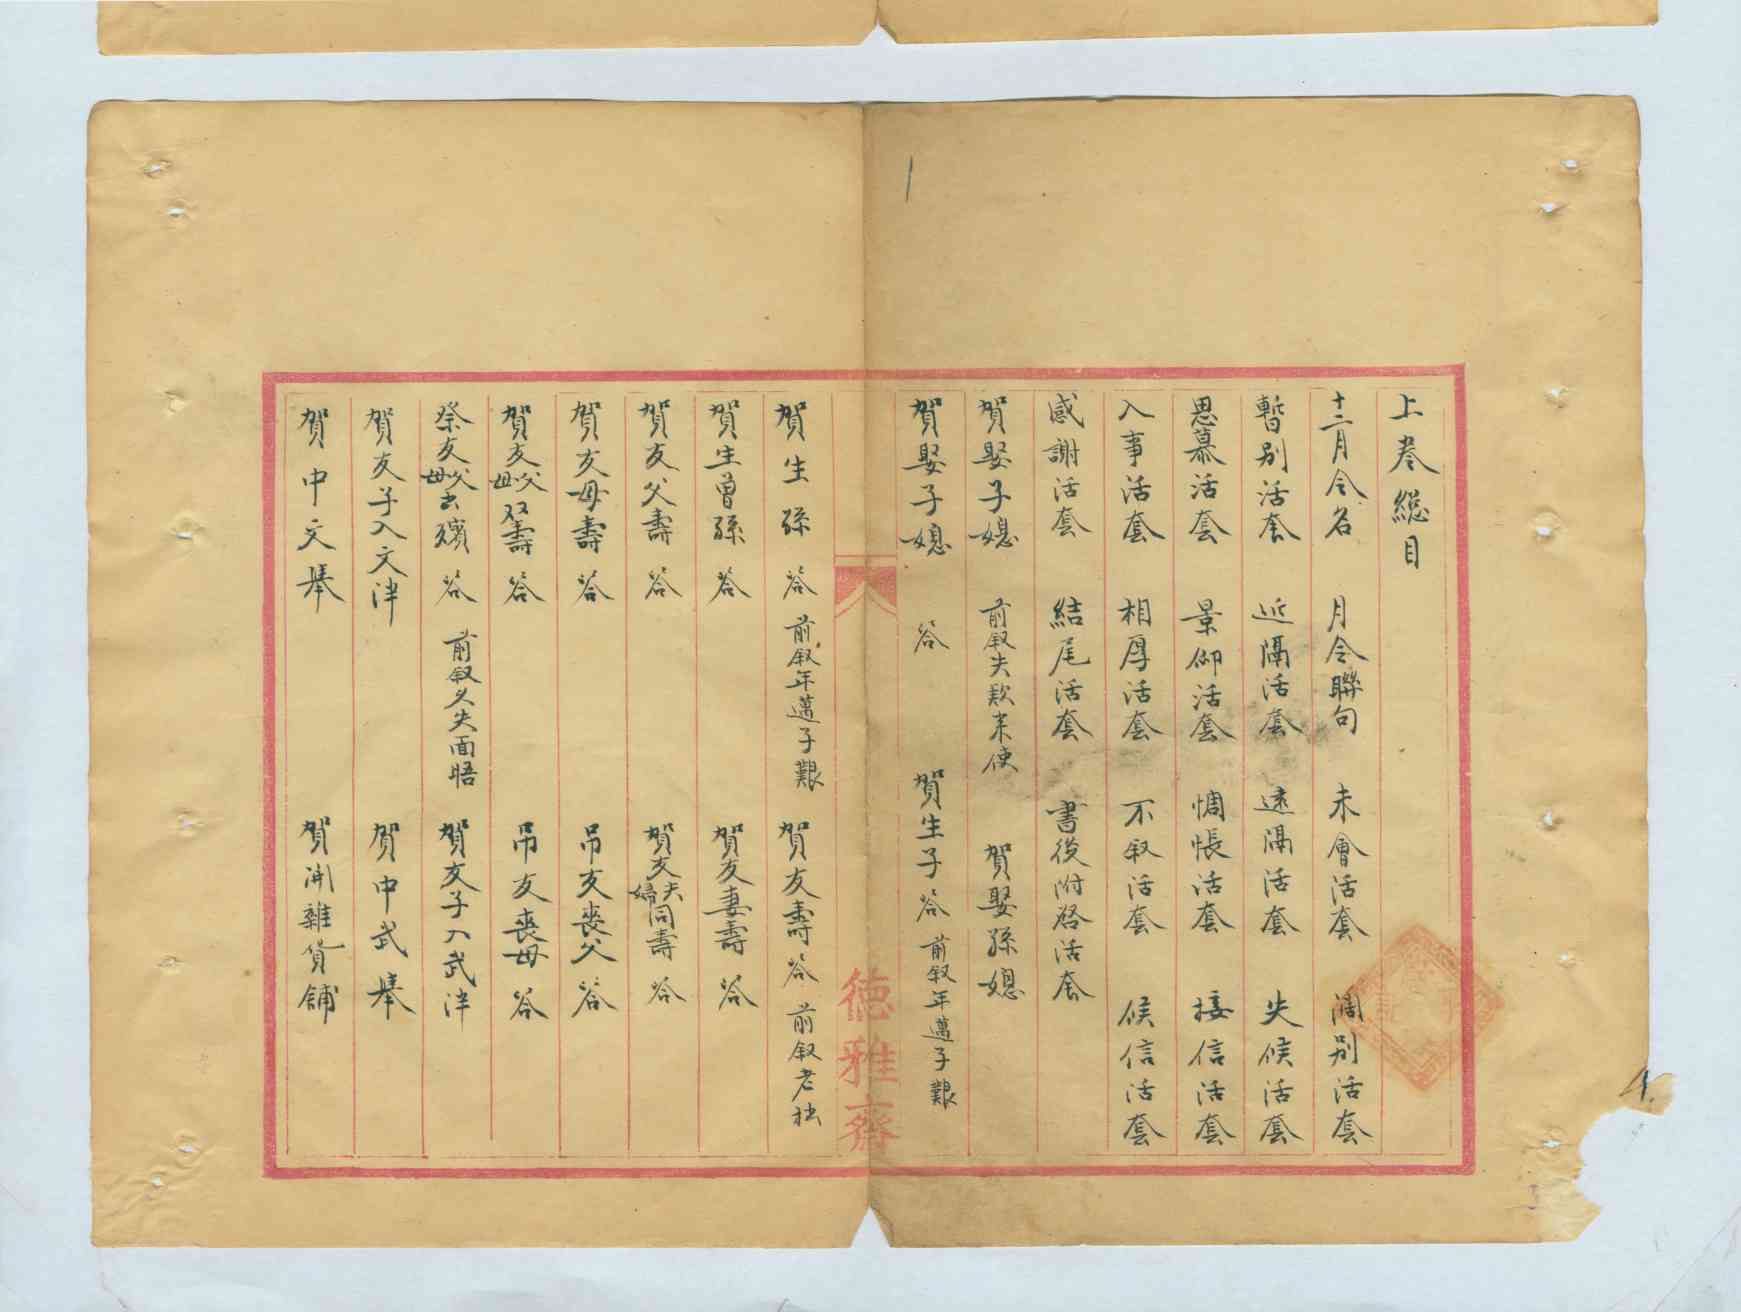 上卷總目
十二月令名 月令聯句 未會活套 濶別活套
暫別活套 近隔活套 遠隔活套 失候活套
思慕活套 景仰活套 惆悵活套 接信活套
入事活套 相厚活套 不叙活套 候信活套
感謝活套 結尾活套 書後附啓活套
賀娶子媳 前叙失欵来使 賀娶孫媳
賀娶子媳 答 賀生子 答 前叙年邁子艱
德雅齋
賀生孫 答 前叙年邁子艱 賀友壽 答 前叙老拙
賀生曾孫 答 賀友妻壽 答
賀友父壽 答 賀友夫婦同壽 答
賀友母壽 答 吊友喪父 答
賀友父母双壽 答 吊友喪母 答
祭友父母出殯 答 前叙久失面晤 賀友子入武泮
賀友子入文泮 賀中武舉
賀中文舉 賀開雜貨舖